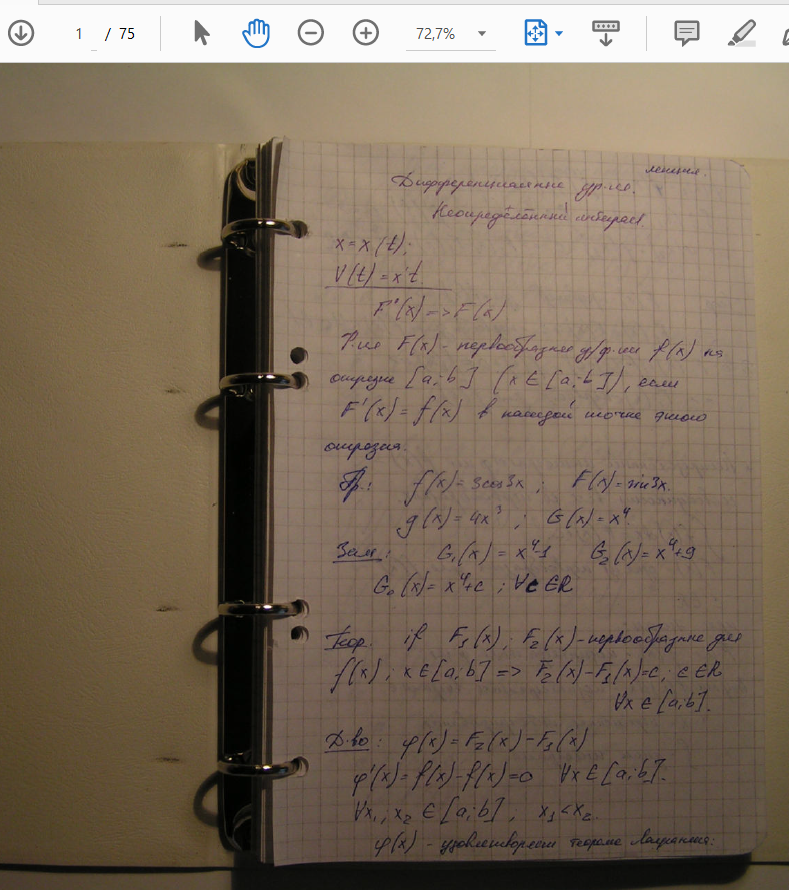 1 / 75
72,7%
лекция
Дифференциальные ур-ия.
Неопределённый интеграл.
x = x(t);
V(t) = x't
F'(x) => F(x)
Ф-ия F(x) - первообразная д/ф-ии f(x) на
отрезке [a;b] (x ∈ [a;b]), если
F'(x) = f(x) в каждой точке этого
отрезка.
Пр.: f(x) = 3cos3x ; F(x) = sin3x.
g(x) = 4x³ ; G(x) = x⁴
Зам: G₁(x) = x⁴-1 G₂(x) = x⁴+9
G₀(x) = x⁴+c ; ∀c ∈ R
Теор. if F₁(x), F₂(x) - первообразные для
f(x) ; x ∈ [a;b] => F₂(x) - F₁(x) = c, c ∈ R
∀x ∈ [a;b].
Д-во: φ(x) = F₂(x) - F₁(x)
φ'(x) = f(x) - f(x) = 0 ∀x ∈ [a;b].
∀x₁; x₂ ∈ [a;b], x₁ < x₂
φ(x) - удовлетворяет теореме Лагранжа: